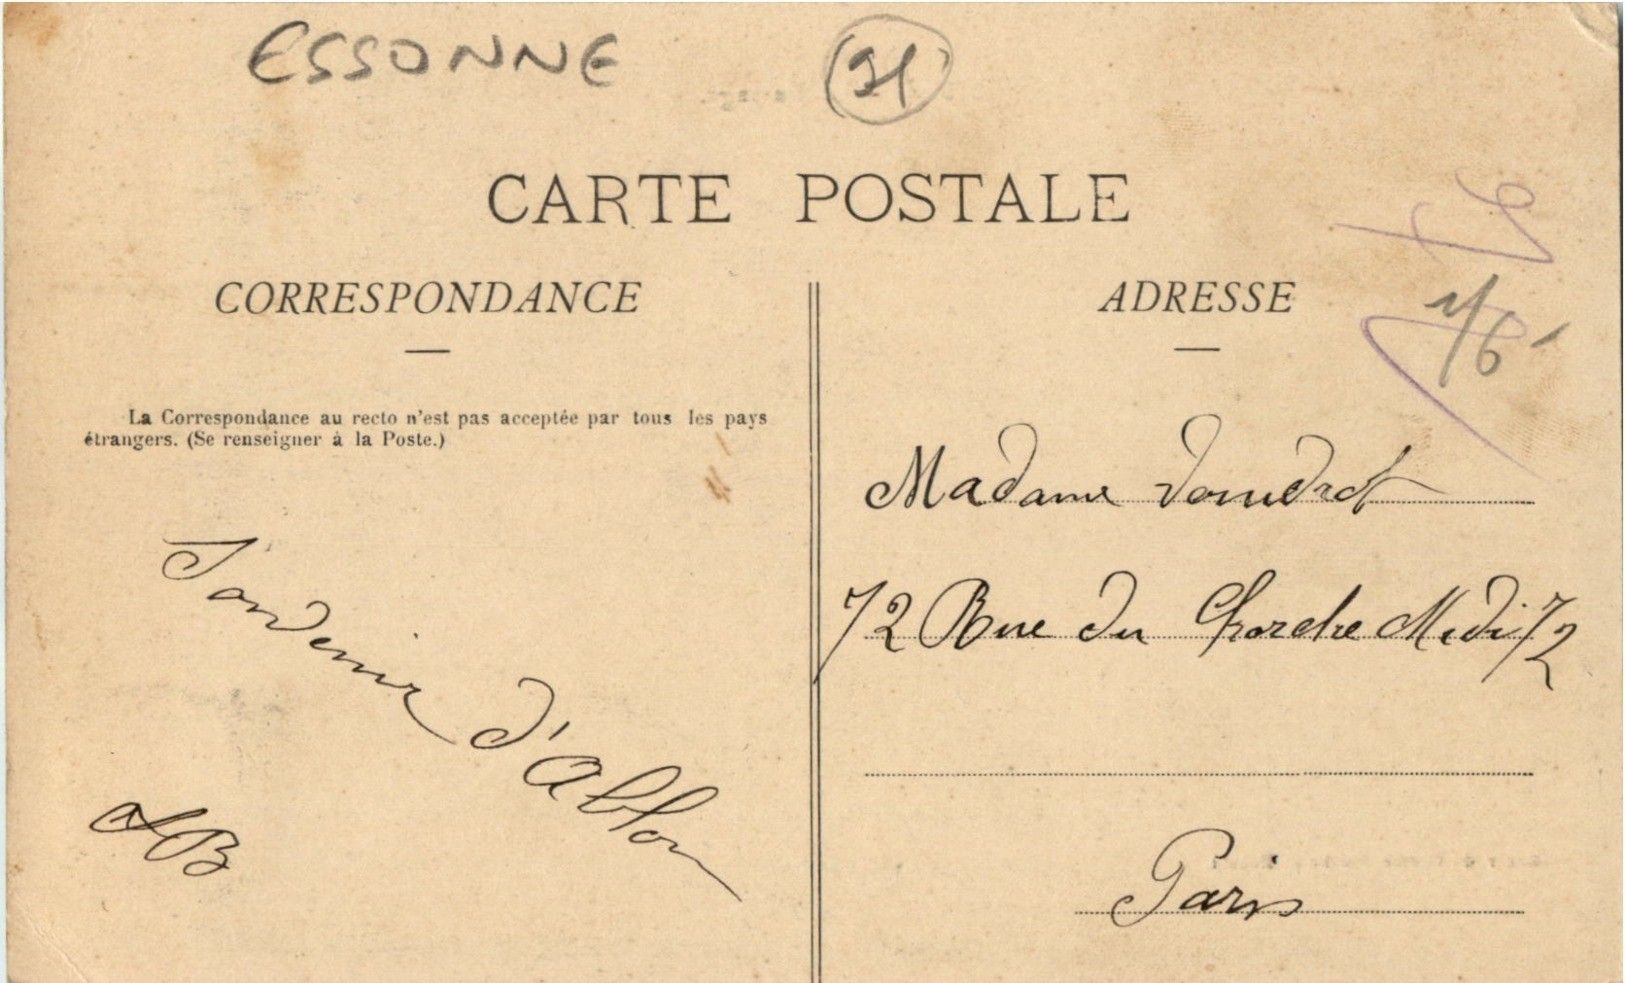 ESSONNE 91
CARTE POSTALE
CORRESPONDANCE
La Correspondance au recto n'est pas acceptée par tous les pays
étrangers. (Se renseigner à la Poste.)
Souvenir d'Ablon
AB
ADRESSE
Madame
72 Rue du Cherche Midi 72
Paris